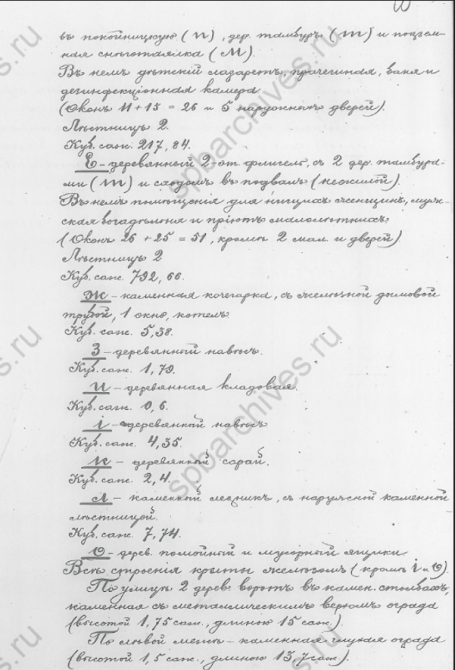 въ покойницкую (п), дер. тамбуръ (т) и подзем-
ная снѣготаялка (М)
Въ немъ дѣтскій лазаретъ, прачешная, баня и
дезинфекціонная камера
(Оконъ 11 + 15 = 26 и 5 наружныхъ дверей).
Лѣстницъ 2.
Куб. саж. 217,84.
Е - деревянный 2 эт флигель, съ 2 дер. тамбура-
ми (т) и сходомъ въ подвалъ (нежилой).
Въ немъ помѣщенія для нищихъ женщинъ, муж-
ская богадѣльня и пріютъ малолѣтнихъ
(Оконъ 26 + 25 = 51, кромѣ 2 мал. и дверей)
Лѣстницъ 2
Куб. саж. 792,66.
Ж - каменная кочегарка, съ желѣзной дымовой
трубой, 1 окно, котелъ
Куб. саж. 5,38.
З - деревянный навѣсъ.
Куб. саж. 1,79.
И - деревянная кладовая.
Куб. саж. 0,6.
і - деревянный навѣсъ
Куб. саж. 4,35.
К - деревянный сарай.
Куб. саж. 2,4.
Л - каменный ледникъ, съ наружной каменной
лѣстницой.
Куб. саж. 7,74.
О - дерев. помойный и мусорный ящики
Всѣ строенія крыты желѣзомъ (кромѣ і и О)
По улицѣ 2 дерев. воротъ въ камен. столбахъ,
каменная съ металлическимъ верхомъ ограда
(высотой 1,75 саж., длиною 15 саж.)
По лѣвой межѣ - каменная глухая ограда
(высотой 1,5 саж., длиною 13,7 саж.)
spbarchives.ru
spbarchives.ru
spbarchives.ru